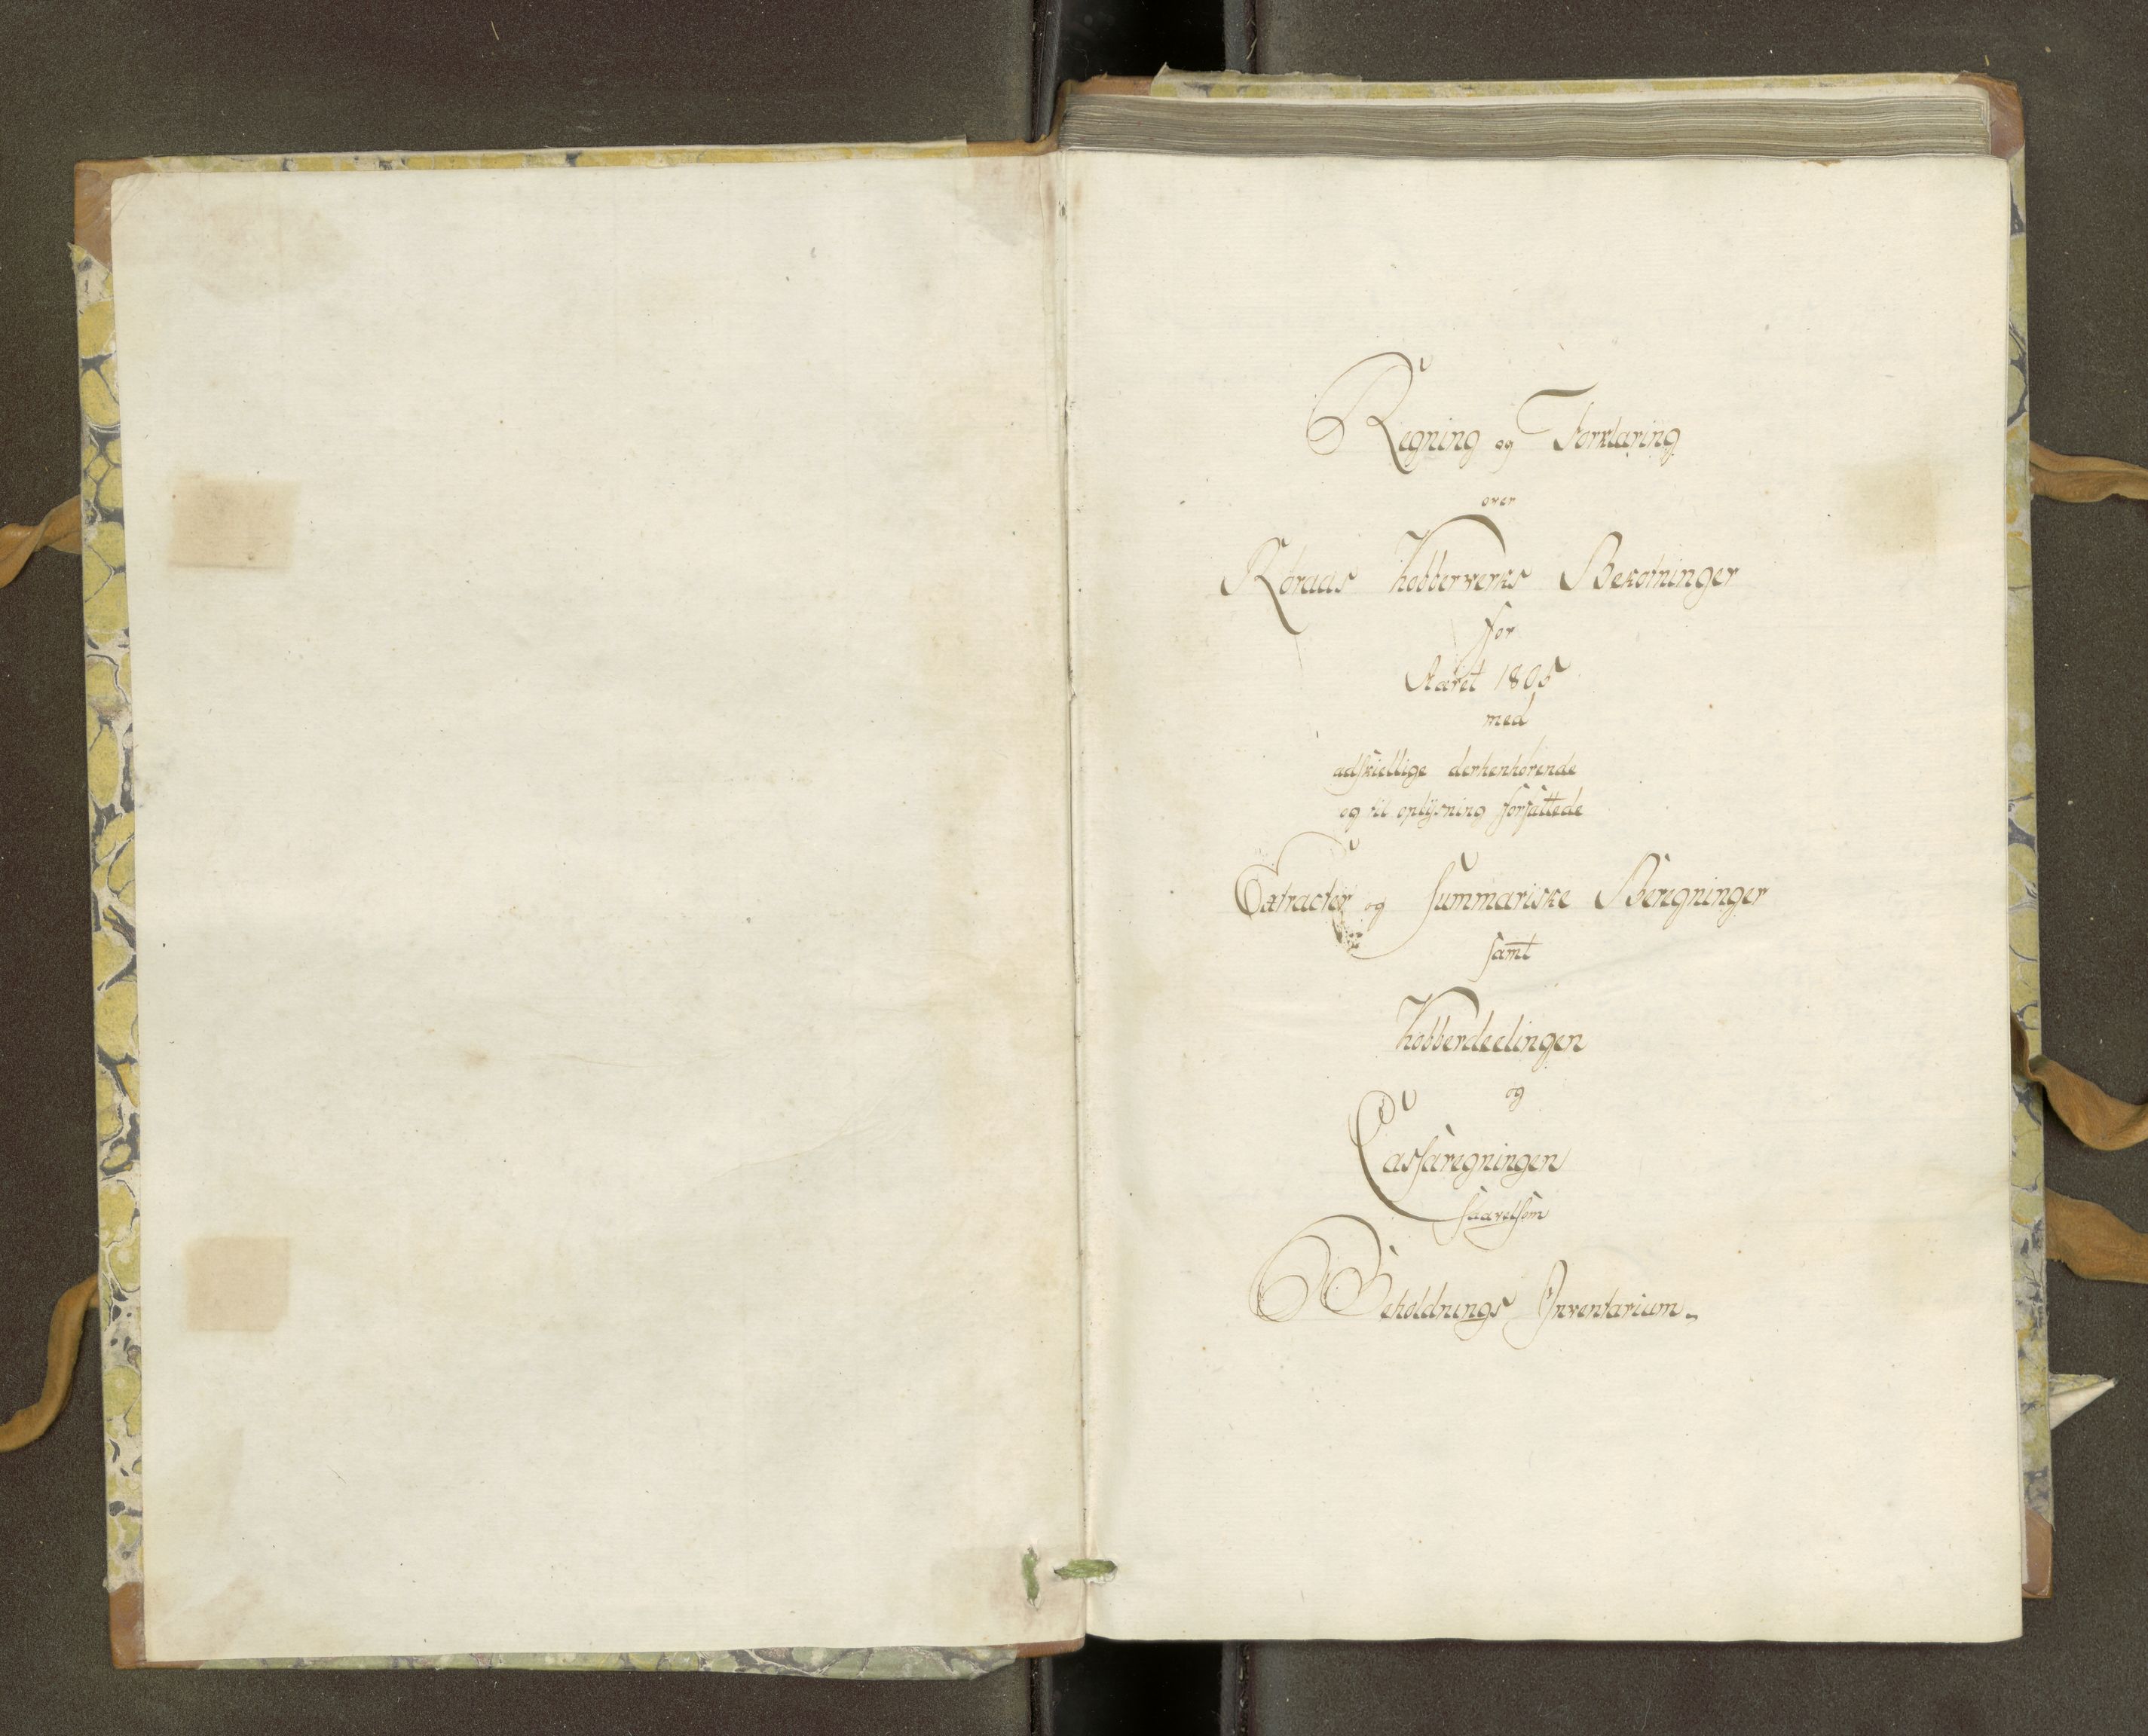 Regning og Forklaring
over
Röraas Kobberverks Bekostninger
for
Aaret 1805
med
adskiellige derhenhörende
og til oplÿsning forfattede
Extracter og Summariske Beregninger
samt
Kobberdeelingen
og
Cassaregningen
saavelsom
Beholdnings Inventarium